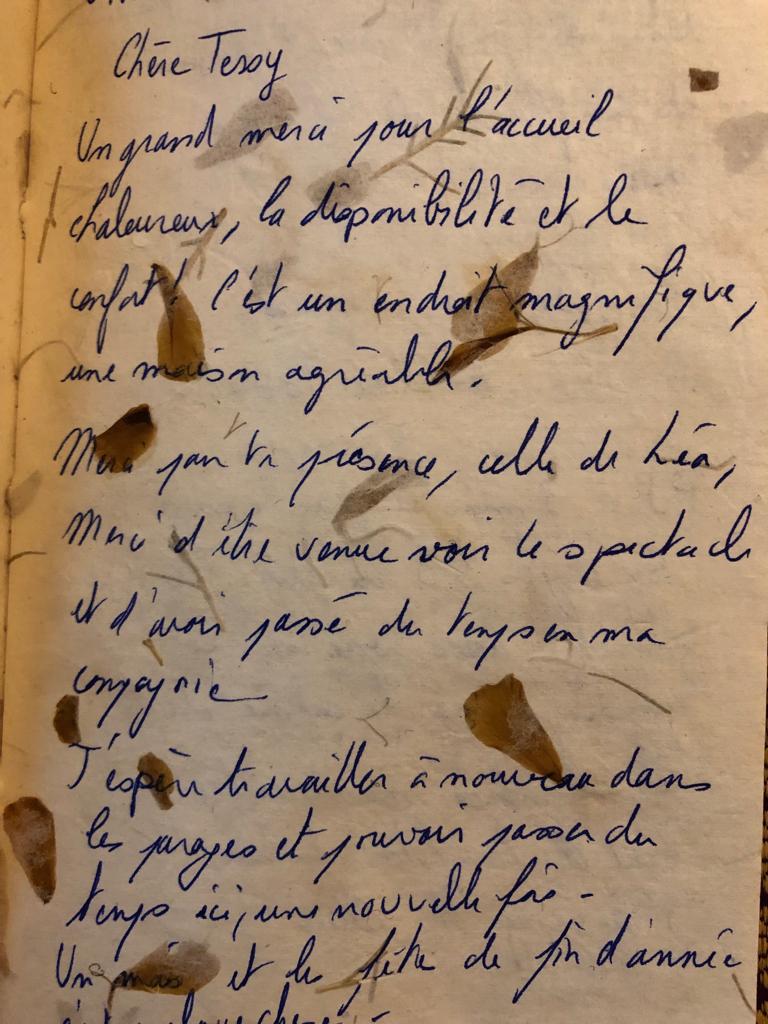 Chère Tessy
Un grand merci pour l'accueil
chaleureux, la disponibilité et le
confort! C'est un endroit magnifique,
une maison agréable.
Merci pour ta présence, celle de Léa,
Merci d'être venue voir le spectacle
et d'avoir passé du temps en ma
compagnie
J'espère travailler à nouveau dans
les parages et pouvoir passer du
temps ici, une nouvelle fois -
Un mois et les fête de fin d'année